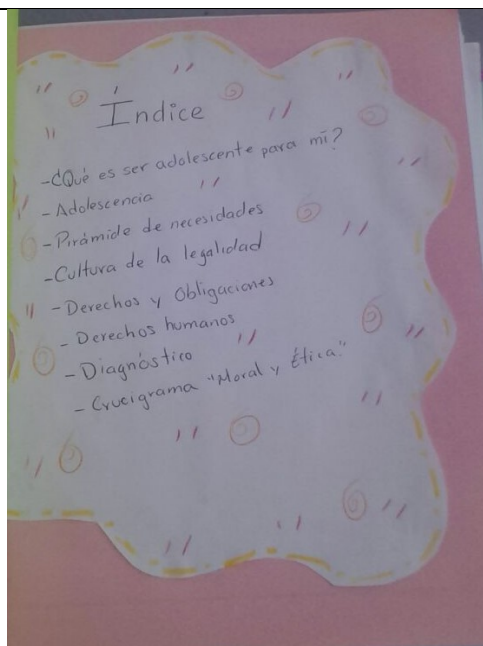 Índice
-¿Qué es ser adolescente para mí?
-Adolescencia
-Pirámide de necesidades
-Cultura de la legalidad
-Derechos y Obligaciones
-Derechos humanos
-Diagnóstico
-Crucigrama "Moral y Ética."